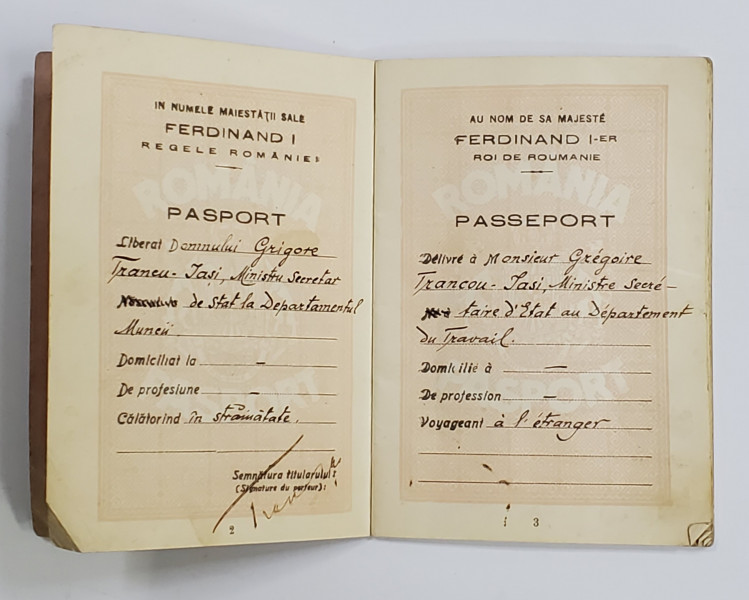 IN NUMELE MAIESTĂȚII SALE
FERDINAND I
REGELE ROMÂNIEI
ROMÂNIA
PASPORT
Liberat Domnului Grigore
Trancu-Iași, Ministru Secretar
de Stat la Departamentul
Muncii
Domiciliat la —
De profesiune —
Călătorind în străinătate.
PASPORT
Semnătura titularului:
(Signature du porteur):
2
AU NOM DE SA MAJESTÉ
FERDINAND I-ER
ROI DE ROUMANIE
ROMÂNIA
PASSEPORT
Délivré à Monsieur Grégoire
Trancou-Iasi, Ministre Secré-
taire d'Etat au Département
du Travail.
Domicilié à —
De profession —
Voyageant à l'étranger
PASPORT
3